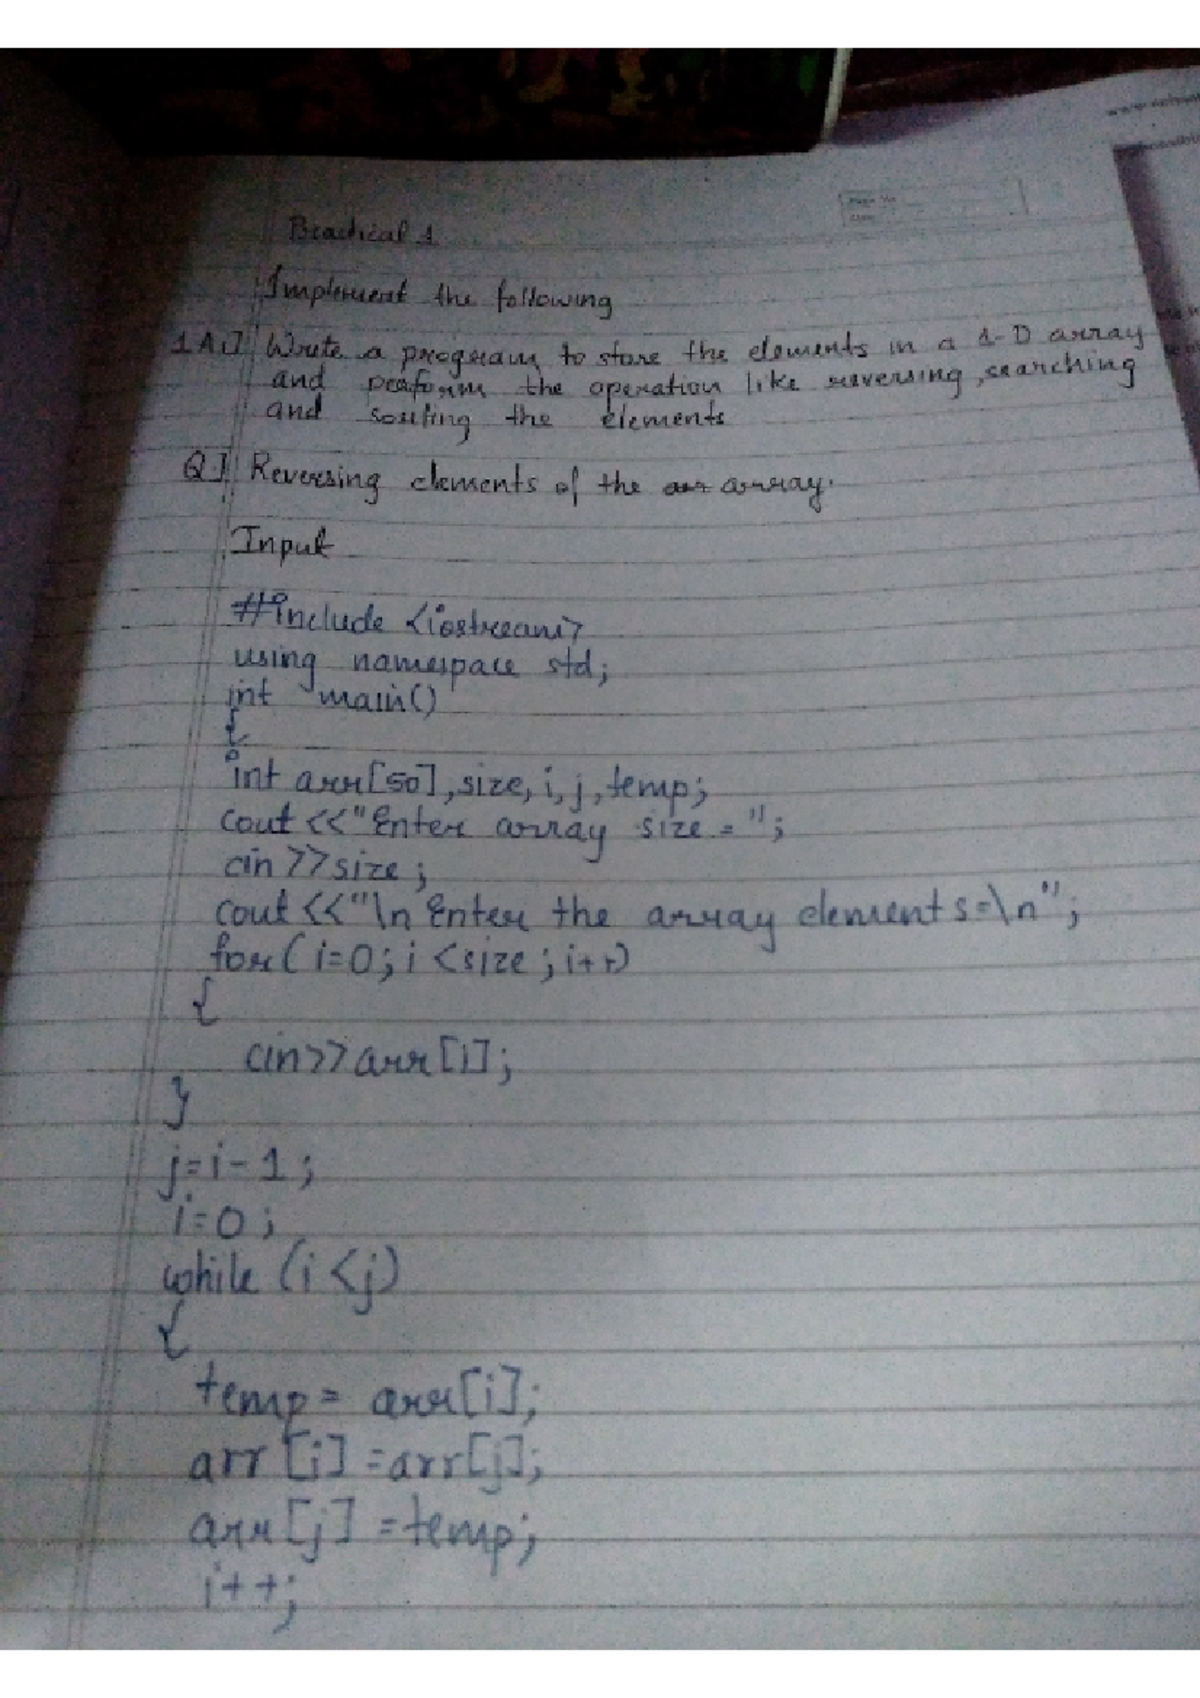 Practical 1
Implement the following
1 A.] Write a program to store the elements in a 1-D array
and perform the operation like reversing, searching
and sorting the elements
Q.] Reversing elements of the arr array.
Input
#include <iostream>
using namespace std;
int main()
{
int arr[50], size, i, j, temp;
cout <<"Enter array size = ";
cin >>size;
cout <<"\n Enter the array elements=\n";
for( i=0; i <size ; i++)
{
cin>>arr[i];
}
j=i-1;
i=0;
while (i <j)
{
temp= arr[i];
arr [i] =arr[j];
arr[j] =temp;
i++;